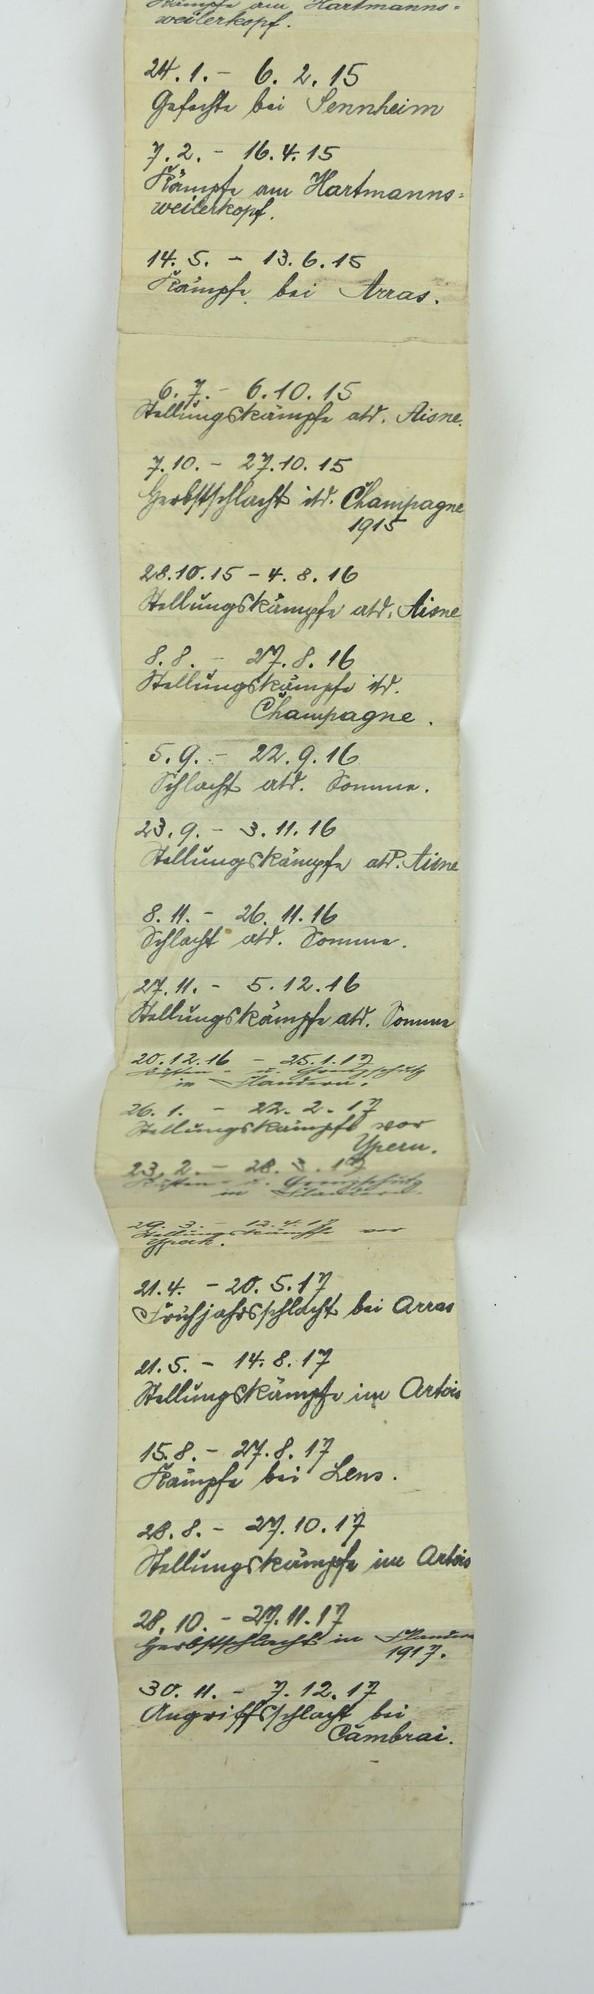 Kämpfe am Hartmanns=
weilerkopf.
24.1. - 6. 2. 15
Gefechte bei Sennheim
7. 2. - 16. 4. 15
Kämpfe am Hartmanns=
weilerkopf.
14. 5. - 13. 6. 15
Kämpfe bei Arras.
6. 7. - 6. 10. 15
Stellungskämpfe atd. Aisne.
7. 10. - 27. 10. 15
Herbstschlacht itd. Champagne
1915
28.10.15 - 4. 8. 16
Stellungskämpfe atd. Aisne
8. 8. - 27. 8. 16
Stellungskämpfe itd.
Champagne.
5. 9. - 22. 9. 16
Schlacht atd. Somme.
23. 9. - 3. 11. 16
Stellungskämpfe atd. Aisne
8. 11. - 26. 11. 16
Schlacht atd. Somme.
27. 11. - 5. 12. 16
Stellungskämpfe atd. Somme
20. 12. 16 - 25. 1. 17
Küsten- u. Grenzschutz
in Flandern.
26. 1. - 22. 2. 17
Stellungskämpfe vor
Ypern.
23. 2. - 28. 3. 17
Küsten- u. Grenzschutz
in Flandern.
29. 3. - 12. 4. 17
Stellungskämpfe vor
21. 4. - 20. 5. 17
Frühjahrsschlacht bei Arras
21. 5. - 14. 8. 17
Stellungskämpfe im Artois
15. 8. - 27. 8. 17
Kämpfe bei Lens.
28. 8. - 27. 10. 17
Stellungskämpfe im Artois
28. 10. - 27. 11. 17
Herbstschlacht in Flandern
1917.
30. 11. - 7. 12. 17
Angriffsschlacht bei
Cambrai.